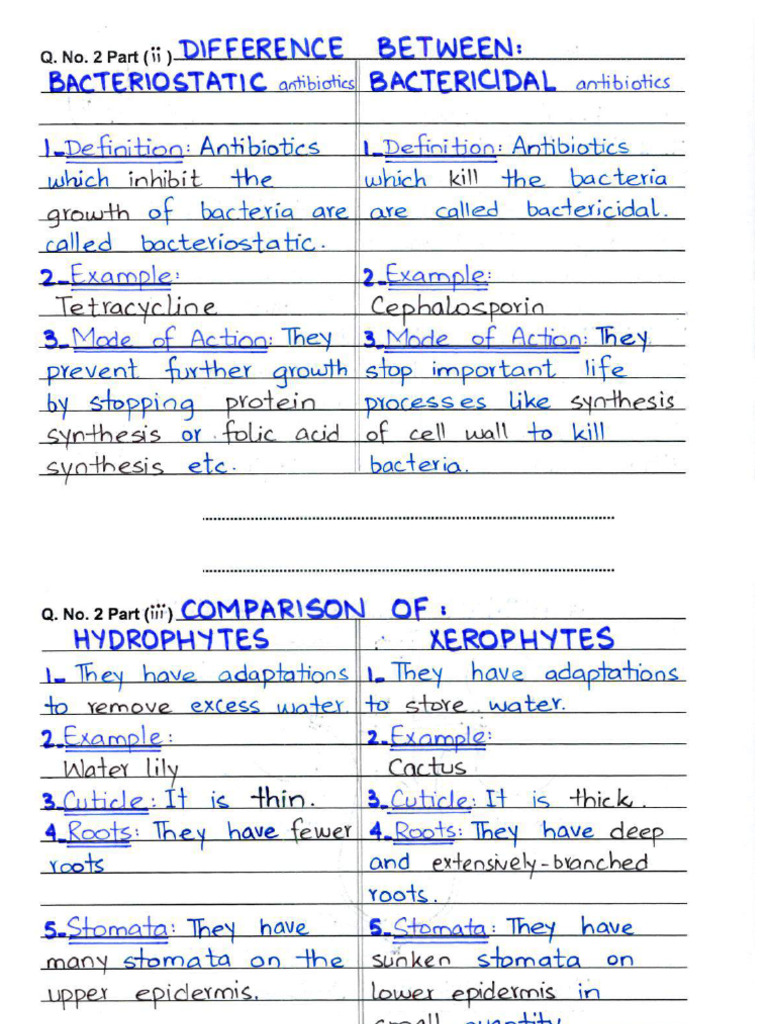 Q. No. 2 Part (ii) DIFFERENCE BETWEEN:
BACTERIOSTATIC antibiotics
1- Definition: Antibiotics
which inhibit the
growth of bacteria are
called bacteriostatic.
2- Example:
Tetracycline
3- Mode of Action: They
prevent further growth
by stopping protein
synthesis or folic acid
synthesis etc.
BACTERICIDAL antibiotics
1- Definition: Antibiotics
which kill the bacteria
are called bactericidal.
2- Example:
Cephalosporin
3- Mode of Action: They
stop important life
processes like synthesis
of cell wall to kill
bacteria.
Q. No. 2 Part (iii) COMPARISON OF:
HYDROPHYTES
1- They have adaptations
to remove excess water.
2- Example:
Water lily
3- Cuticle: It is thin.
4- Roots: They have fewer
roots
5- Stomata: They have
many stomata on the
upper epidermis.
XEROPHYTES
1- They have adaptations
to store water.
2- Example:
Cactus
3- Cuticle: It is thick.
4- Roots: They have deep
and extensively-branched
roots.
5- Stomata: They have
sunken stomata on
lower epidermis in
small quantity